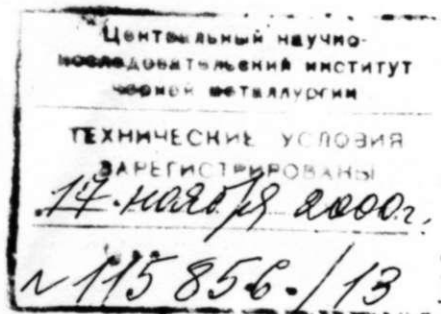 Центральный научно-
исследовательский институт
черной металлургии
ТЕХНИЧЕСКИЕ УСЛОВИЯ
ЗАРЕГИСТРИРОВАНЫ
17. ноября 2000г.
N 115856./13